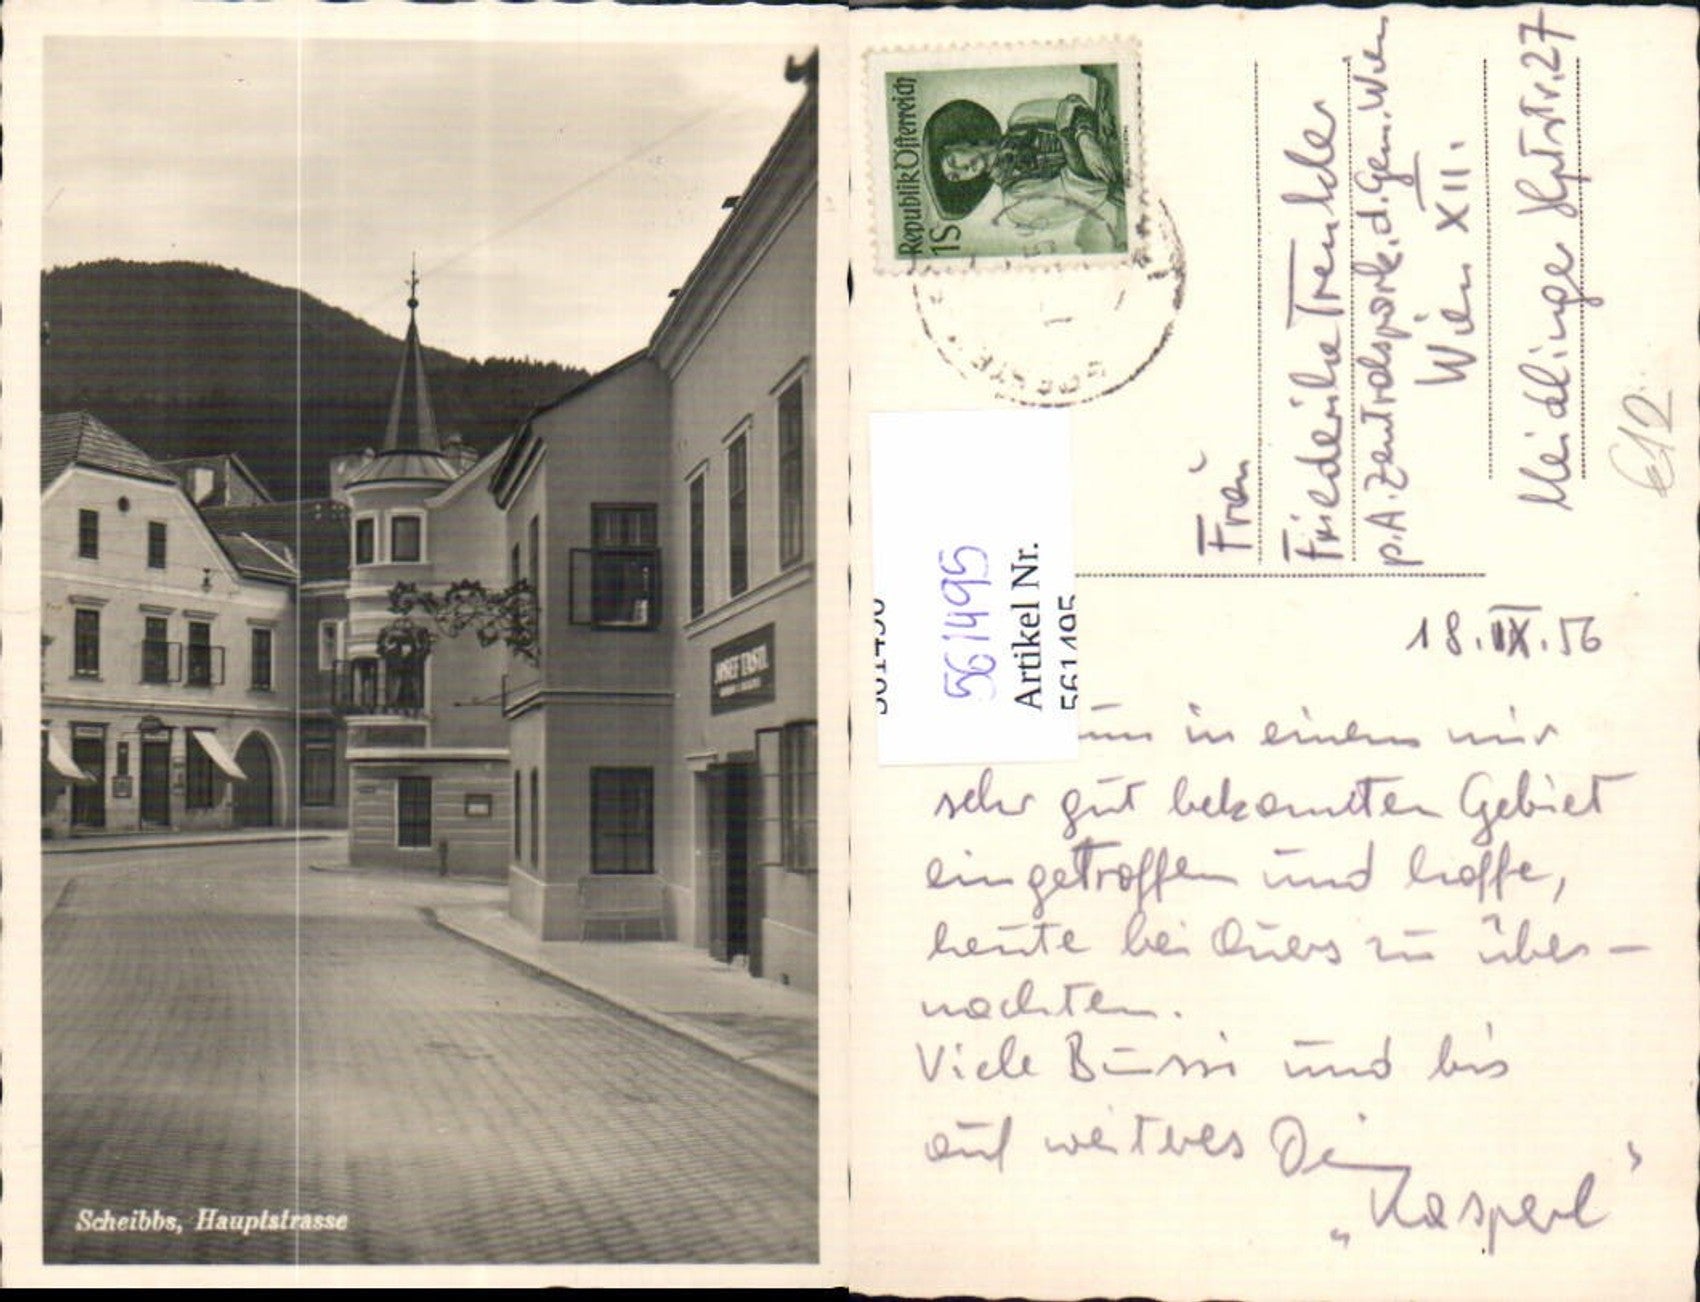 JOSEF TRSTL
Scheibbs, Hauptstrasse
Republik Österreich
1S
Frau
Friederike Trenkler
p.A. Zentralspark. d. Gem. Wien
Wien XII.
Meidlinger Hptstr. 27
€12
561495
Artikel Nr.
561495
18. IX. 56
in einem mir
sehr gut bekannten Gebiet
eingetroffen und hoffe,
heute bei Ouers zu über-
nachten.
Viele Bussi und bis
auf weiteres Dein
„Kasperl”